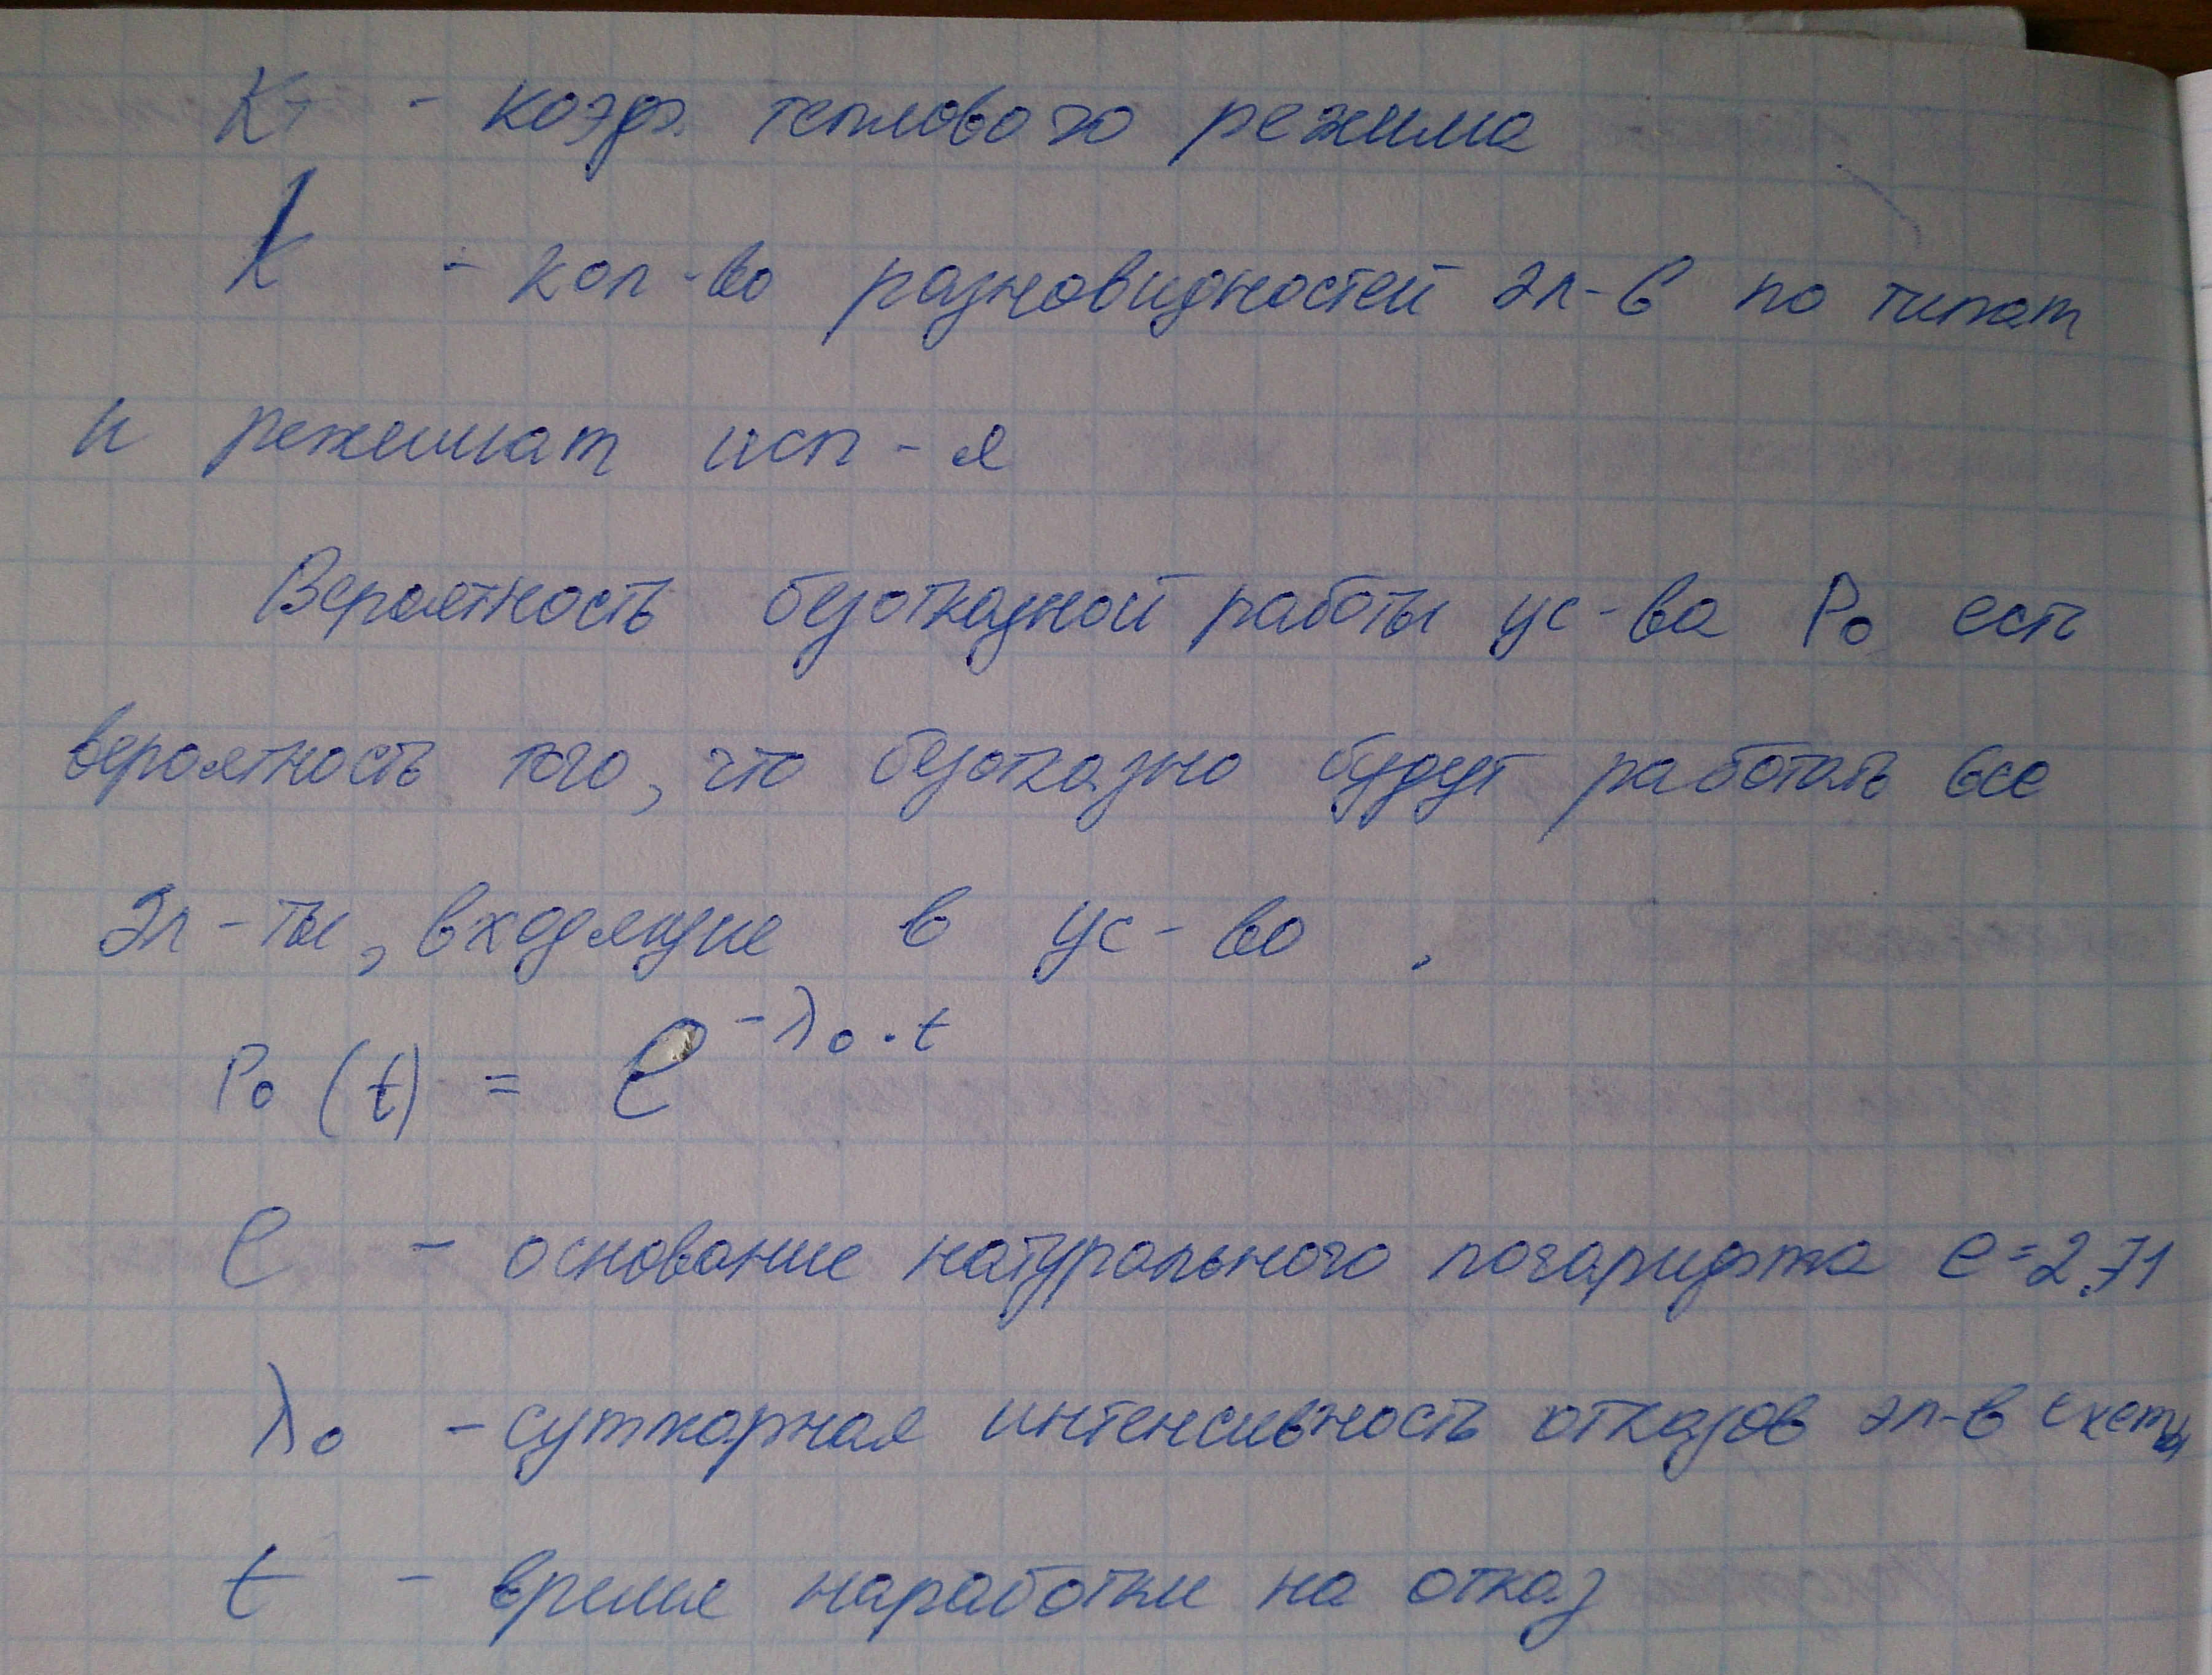 Kт - коэф. теплового режима
K - кол-во разновидностей эл-в по типам
и режимам исп-я
Вероятность безотказной работы ус-ва P₀ есть
вероятность того, что безотказно будут работать все
эл-ты, входящие в ус-во .
P₀ (t) = e^(-λ₀·t)
e - основание натурального логарифма e=2,71
λ₀ - суммарная интенсивность отказов эл-в схемы
t - время наработки на отказ